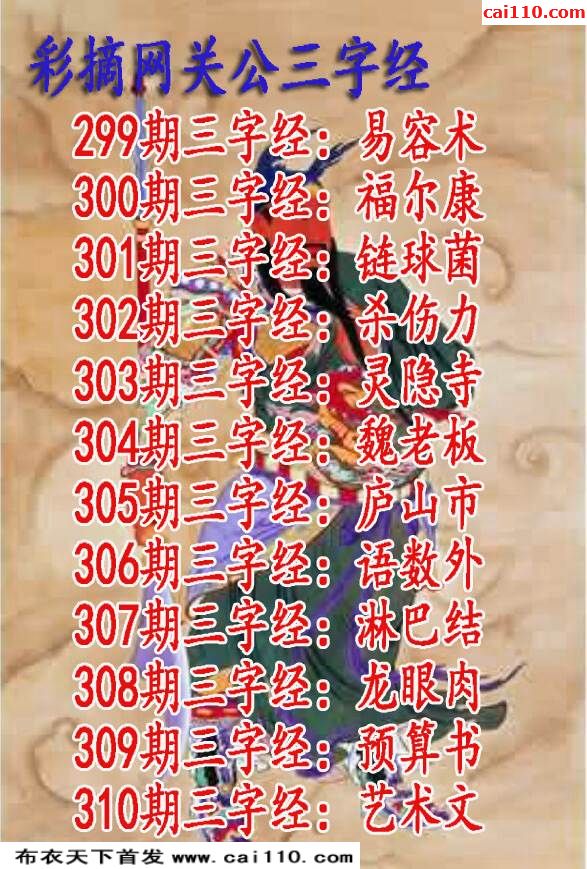 cai110.com
彩摘网关公三字经
299期三字经：易容术
300期三字经：福尔康
301期三字经：链球菌
302期三字经：杀伤力
303期三字经：灵隐寺
304期三字经：魏老板
305期三字经：庐山市
306期三字经：语数外
307期三字经：淋巴结
308期三字经：龙眼肉
309期三字经：预算书
310期三字经：艺术文
布衣天下首发 www.cai110.com